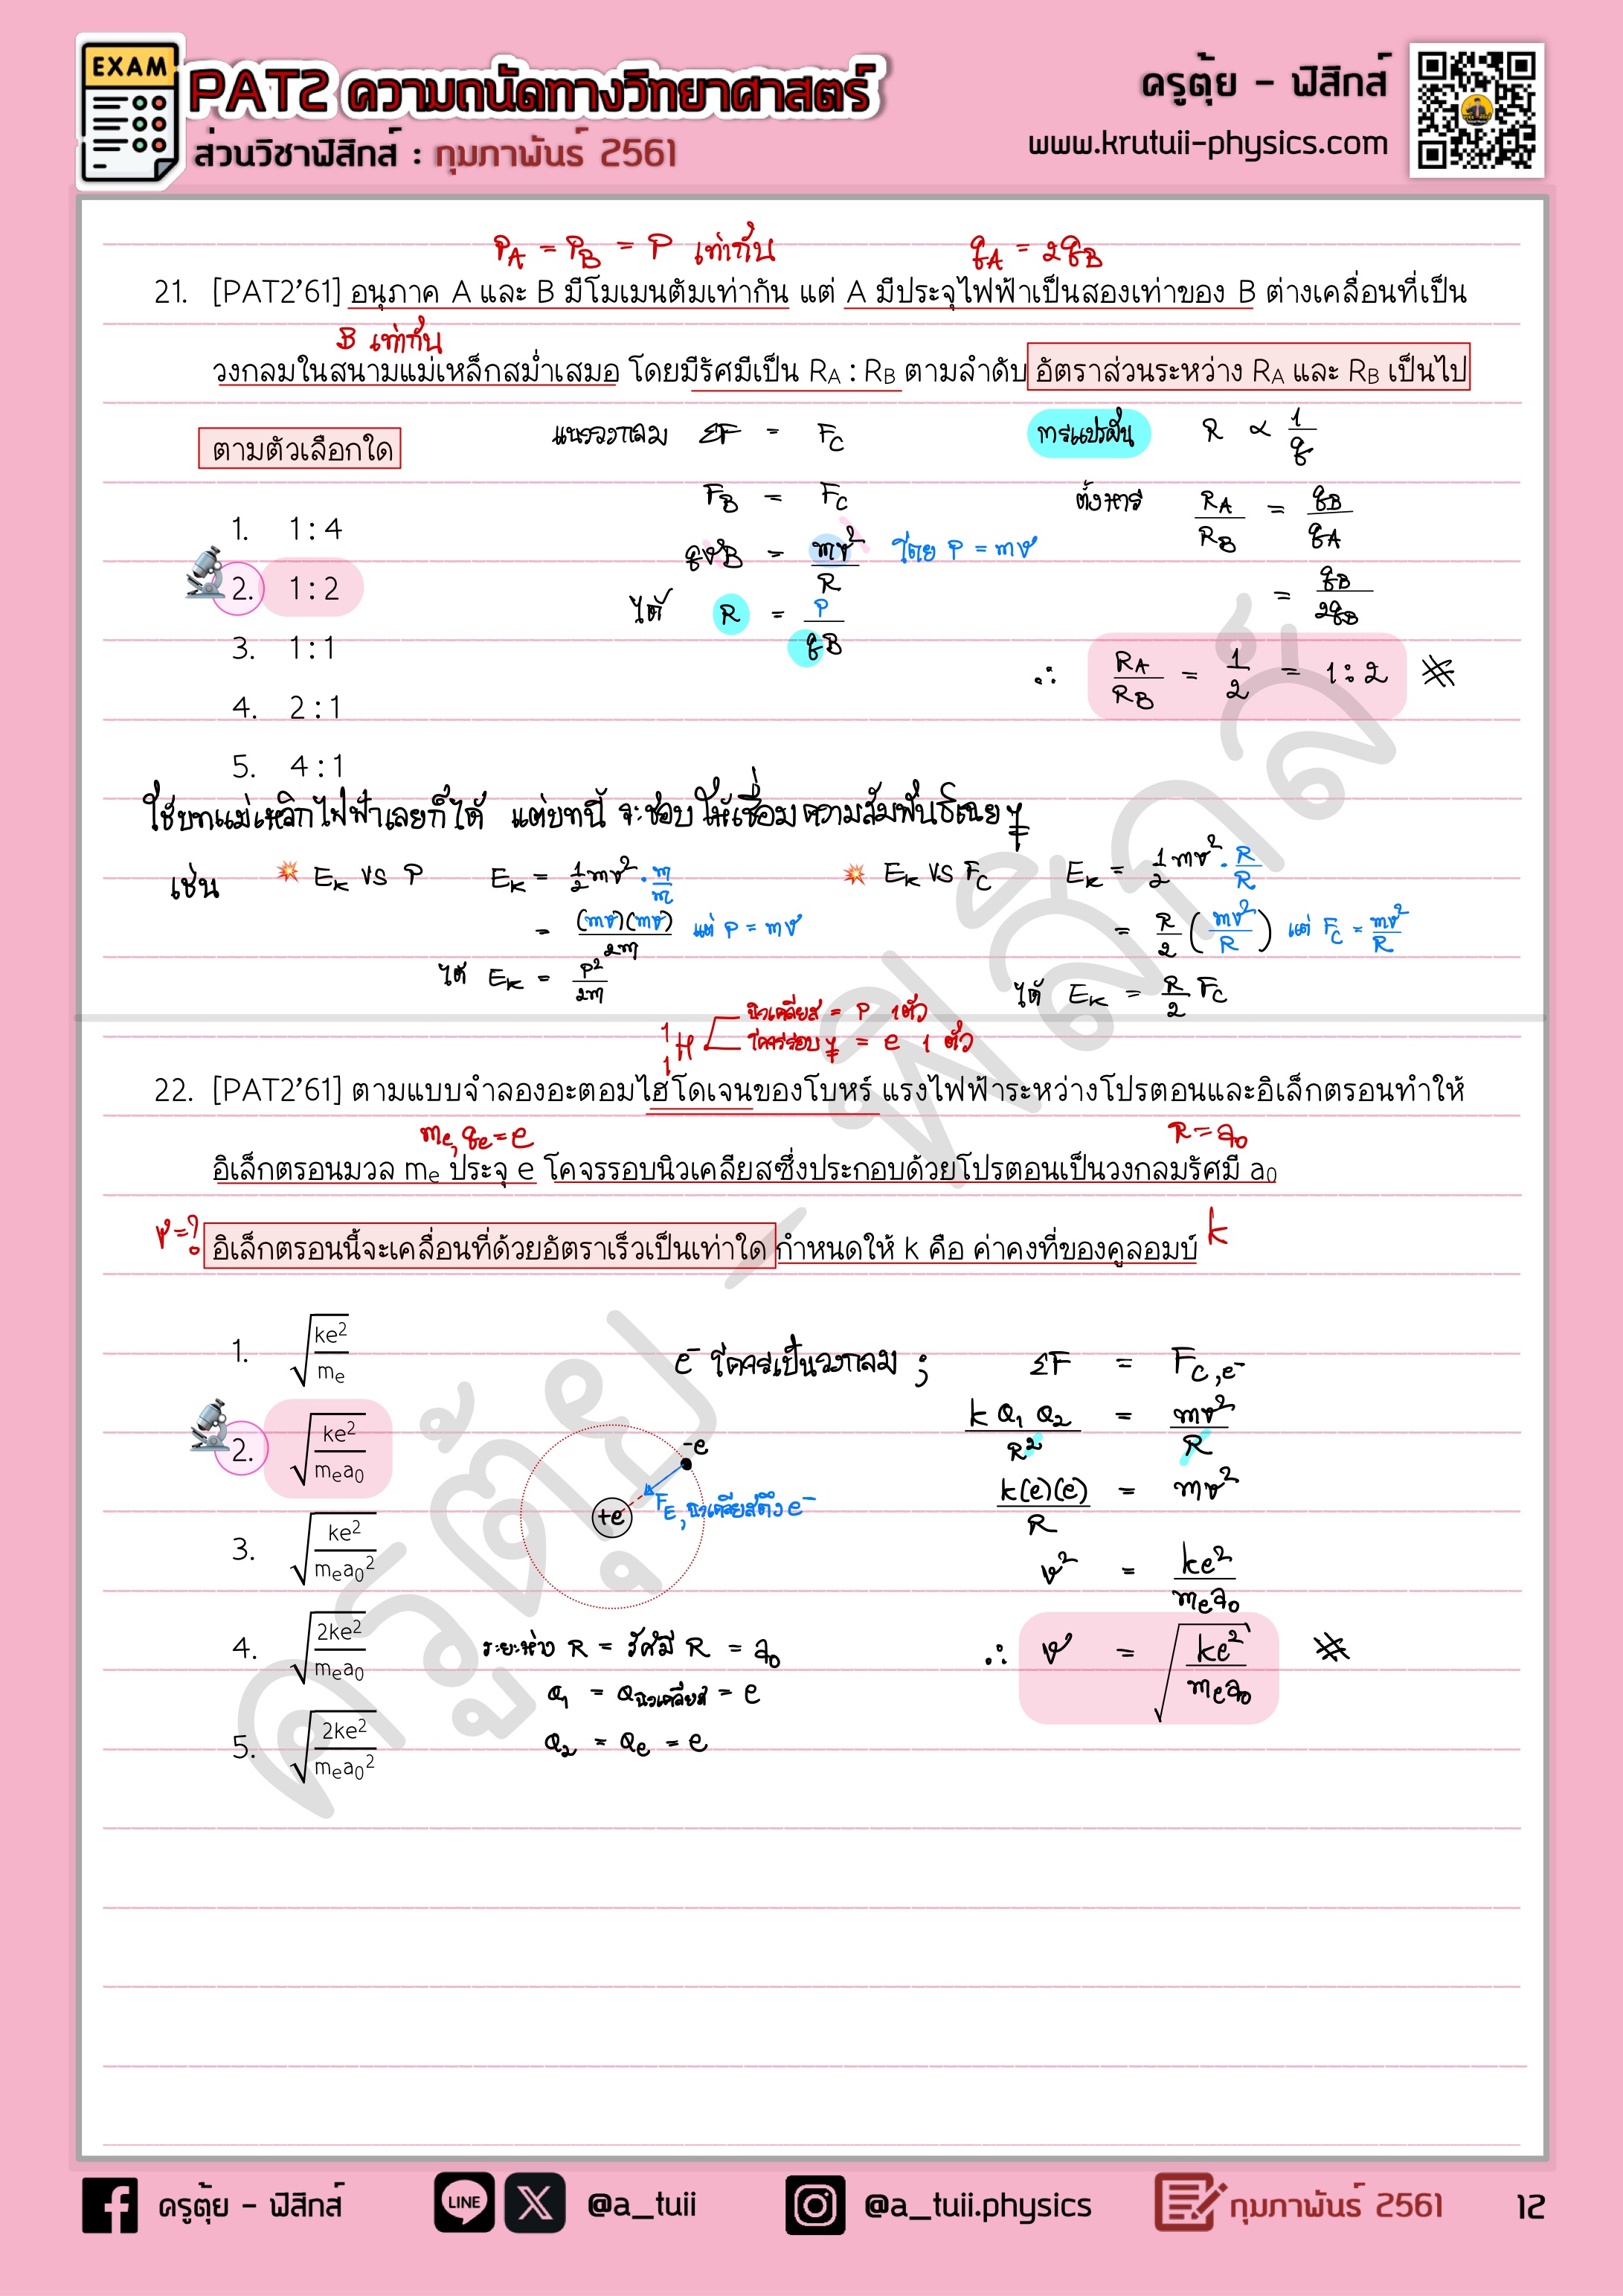 EXAM
PAT2 ความถนัดทางวิทยาศาสตร์
ส่วนวิชาฟิสิกส์ : กุมภาพันธ์ 2561
ครูตุ้ย – ฟิสิกส์
www.krutuii-physics.com
P_A = P_B = P เท่ากัน
q_A = 2q_B
21. [PAT2'61] อนุภาค A และ B มีโมเมนตัมเท่ากัน แต่ A มีประจุไฟฟ้าเป็นสองเท่าของ B ต่างเคลื่อนที่เป็น
B เท่ากัน
วงกลมในสนามแม่เหล็กสม่ำเสมอ โดยมีรัศมีเป็น R_A : R_B ตามลำดับ อัตราส่วนระหว่าง R_A และ R_B เป็นไป
ตามตัวเลือกใด
1. 1 : 4
2. 1 : 2
3. 1 : 1
4. 2 : 1
5. 4 : 1
แนววงกลม ΣF = F_C
F_B = F_C
qvB = mv²/R โดย P = mv
ได้ R = P/qB
การแปรผัน R ∝ 1/q
ตั้งหาร R_A/R_B = q_B/q_A
= q_B/2q_B
∴ R_A/R_B = 1/2 = 1:2
ใช้บทแม่เหล็กไฟฟ้าเลยก็ได้ แต่บทนี้ จะชอบให้เชื่อมความสัมพันธ์เฉยๆ
เช่น E_k vs P E_k = 1/2 mv² · m/m
= (mv)(mv)/2m แต่ P = mv
ได้ E_k = P²/2m
E_k vs F_C E_k = 1/2 mv² · R/R
= R/2 (mv²/R) แต่ F_C = mv²/R
ได้ E_k = R/2 F_C
¹₁H นิวเคลียส = P 1 ตัว
โคจรรอบๆ = e 1 ตัว
22. [PAT2'61] ตามแบบจำลองอะตอมไฮโดเจนของโบหร์ แรงไฟฟ้าระหว่างโปรตอนและอิเล็กตรอนทำให้
m_e, q_e = e
R = a₀
อิเล็กตรอนมวล m_e ประจุ e โคจรรอบนิวเคลียสซึ่งประกอบด้วยโปรตอนเป็นวงกลมรัศมี a₀
v = ?
อิเล็กตรอนนี้จะเคลื่อนที่ด้วยอัตราเร็วเป็นเท่าใด กำหนดให้ k คือ ค่าคงที่ของคูลอมบ์
k
1. √(ke²/m_e)
2. √(ke²/m_e a₀)
3. √(ke²/m_e a₀²)
4. √(2ke²/m_e a₀)
5. √(2ke²/m_e a₀²)
-e
+e
F_E, นิวเคลียสดึง e⁻
ระยะห่าง R = รัศมี R = a₀
Q₁ = Q นิวเคลียส = e
Q₂ = Q_e = e
e⁻ โคจรเป็นวงกลม ; ΣF = F_C,e⁻
k Q₁ Q₂/R² = mv²/R
k(e)(e)/R = mv²
v² = ke²/m_e a₀
∴ v = √(ke²/m_e a₀)
ครูตุ้ย - ฟิสิกส์
ครูตุ้ย – ฟิสิกส์
LINE
@a_tuii
@a_tuii.physics
กุมภาพันธ์ 2561
12